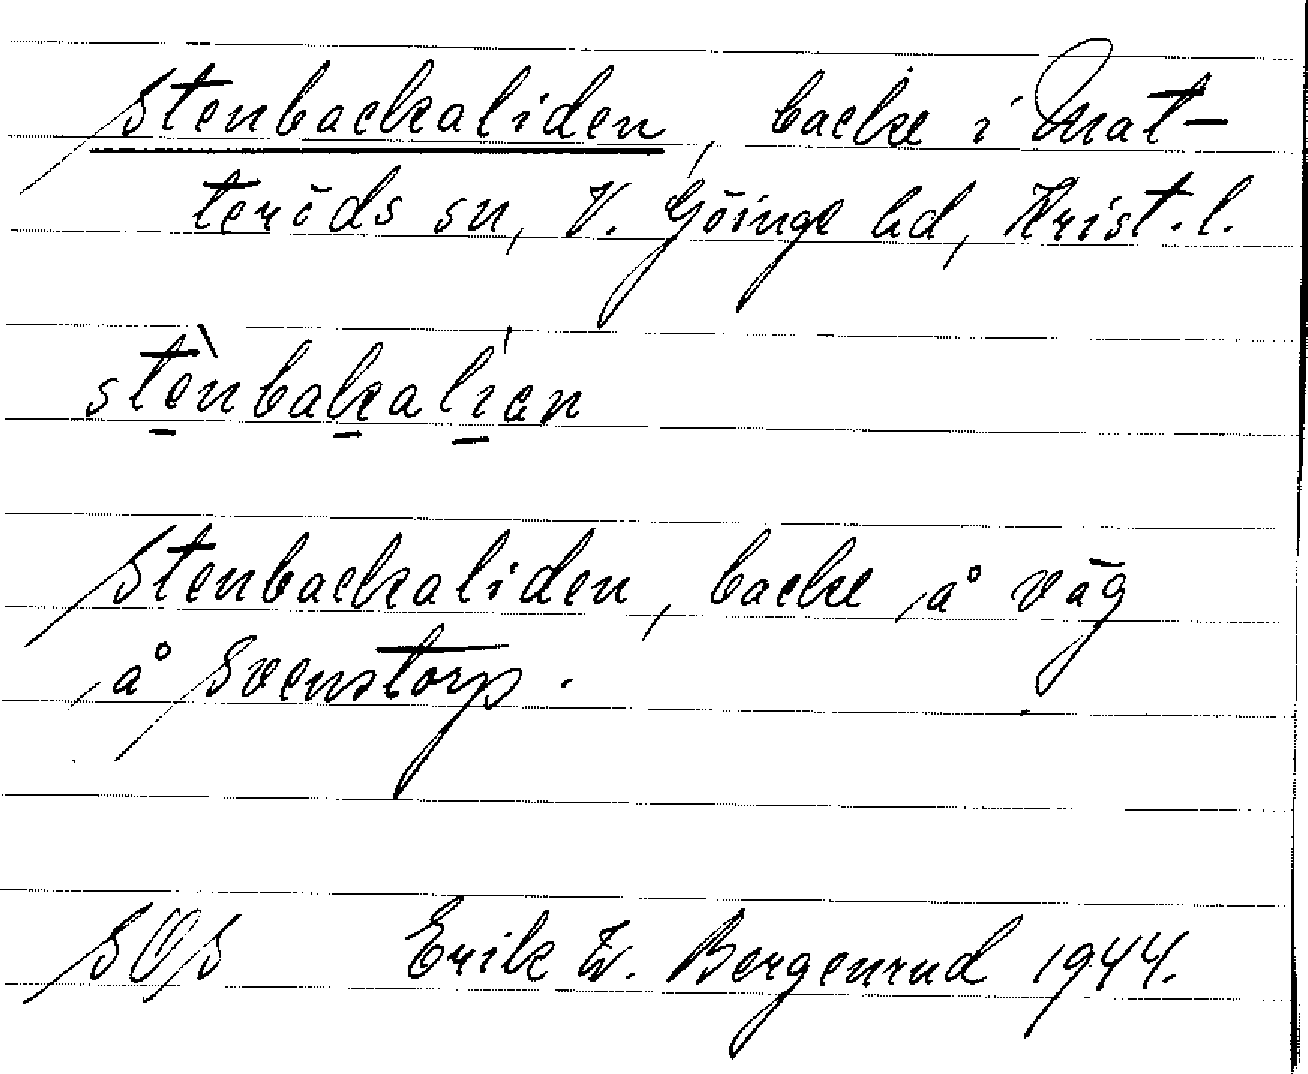 Stenbackaliden, backe i Mat-
teröds sn, V. Göinge hd, Krist. l.
stènbakalían
Stenbackaliden, backe å väg
å Svenstorp.
SOS Erik W. Bergenrud 1944.